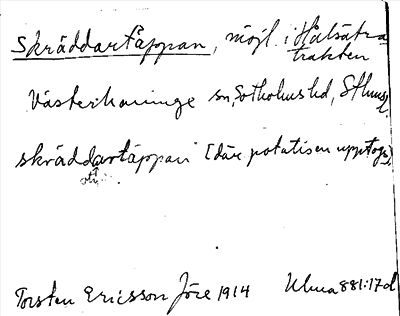 Skräddartäppan, möjl. i Hålsätra-
trakten
Västerhaninge sn, Sotholms hd, Sthms l.
skräddartäppan [där potatisen upptogs]
Torsten Ericsson Jöre 1914 Ulma 881:17 d